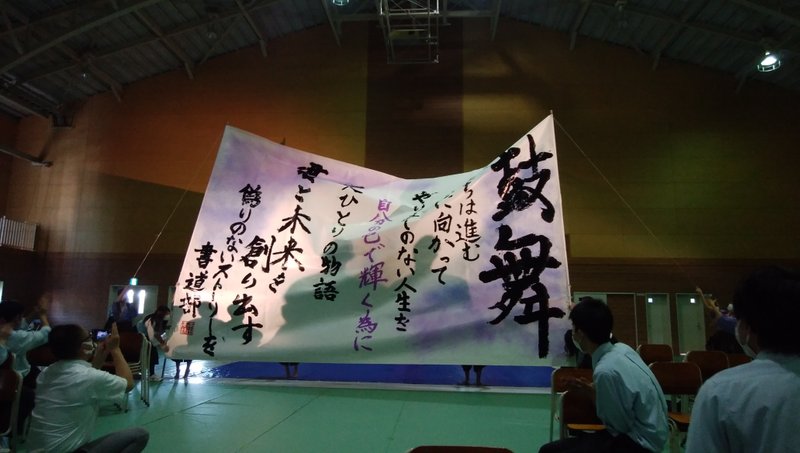 鼓舞
ちは進む
に向かって
のない人生を
自分の色で輝く為に
ひとりの物語
と未来を
創り出す
飾りのないストーリーを
書道部